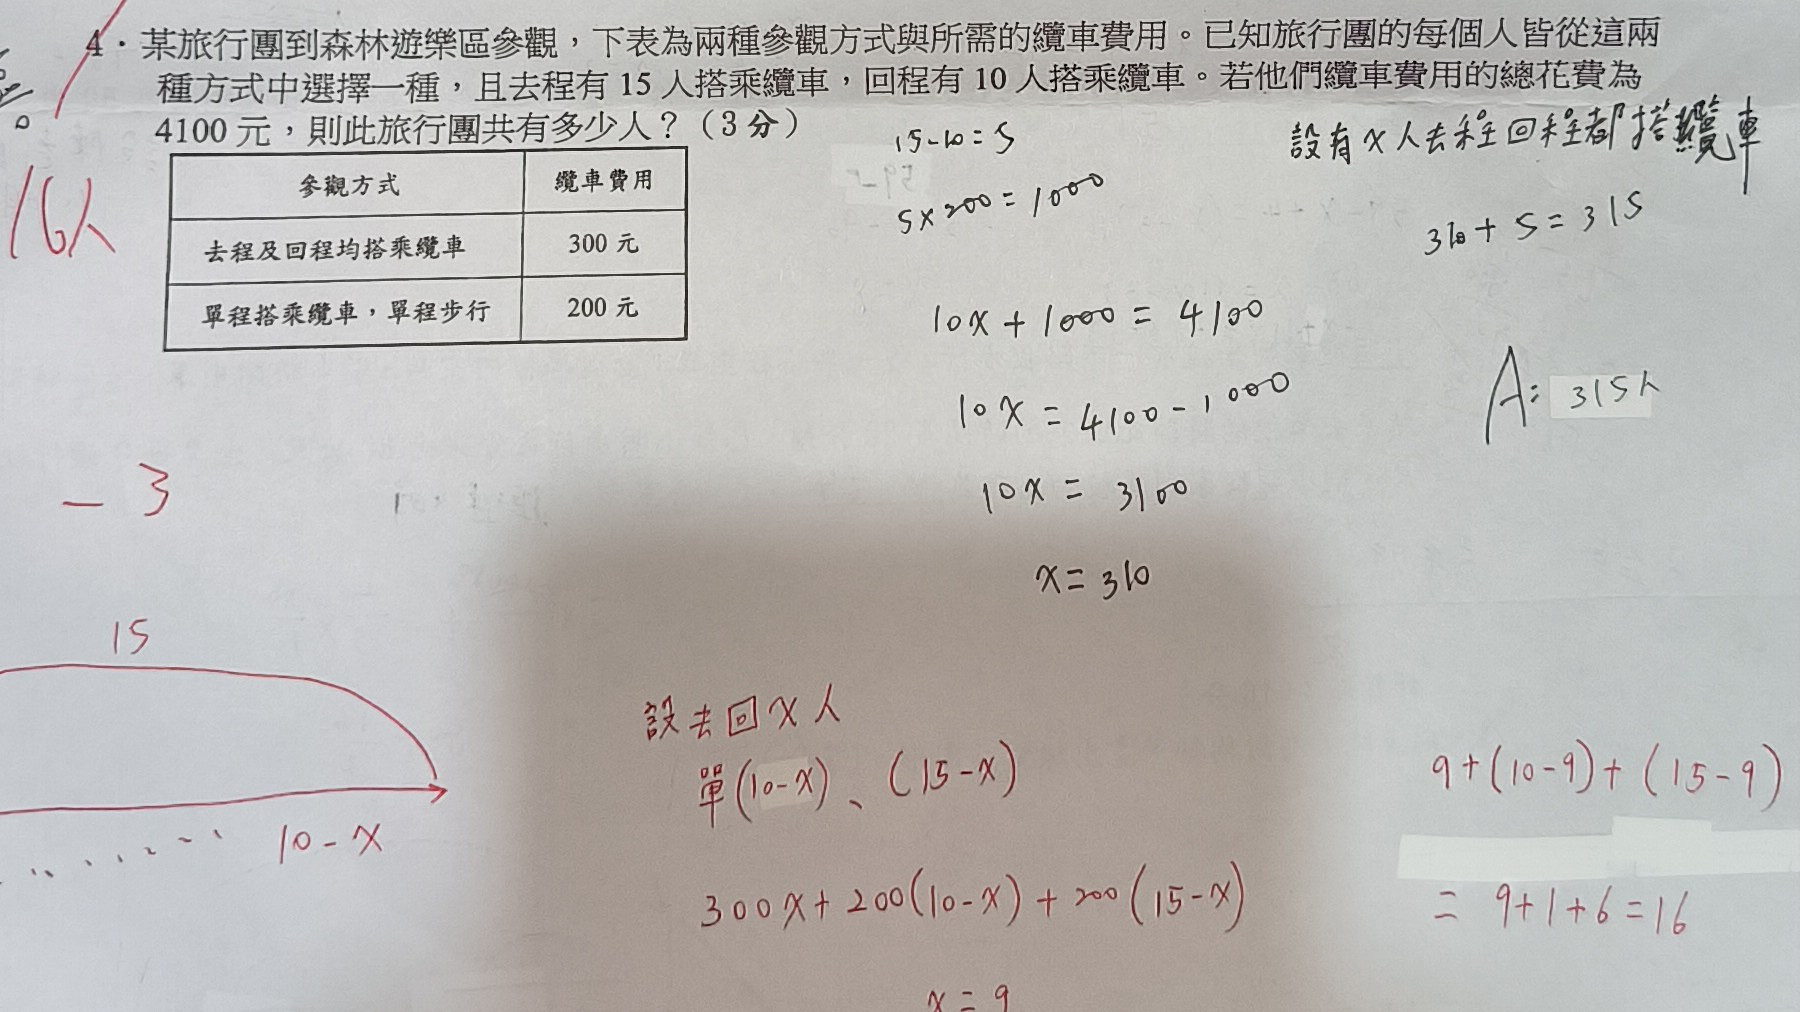 4．某旅行團到森林遊樂區參觀，下表為兩種參觀方式與所需的纜車費用。已知旅行團的每個人皆從這兩
種方式中選擇一種，且去程有 15 人搭乘纜車，回程有 10 人搭乘纜車。若他們纜車費用的總花費為
4100 元，則此旅行團共有多少人？（3 分）
參觀方式 纜車費用
去程及回程均搭乘纜車 300 元
單程搭乘纜車，單程步行 200 元
16人
-3
15-10=5
5×200=1000
10x+1000=4100
10x=4100-1000
10x=3100
x=310
設有x人去程回程都搭纜車
310+5=315
A: 315人
15
10-x
設去回x人
單(10-x)、(15-x)
300x+200(10-x)+200(15-x)
x=9
9+(10-9)+(15-9)
=9+1+6=16